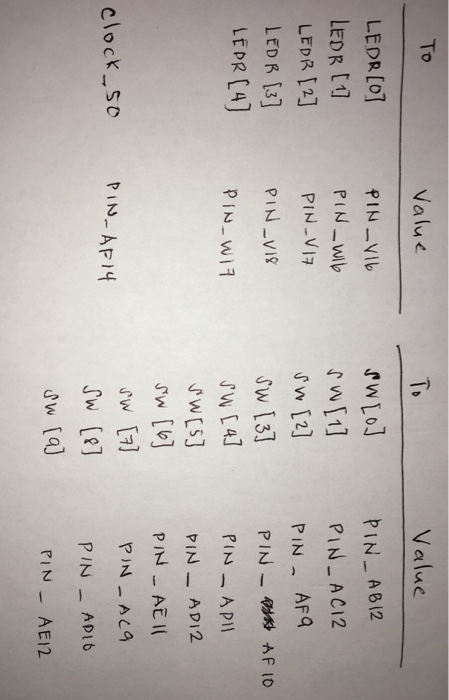 To Value To Value
LEDR[0] PIN_V16 SW[0] PIN_AB12
LEDR[1] PIN_W16 SW[1] PIN_AC12
LEDR[2] PIN_V17 SW[2] PIN_AF9
LEDR[3] PIN_V18 SW[3] PIN_AF10
LEDR[4] PIN_W17 SW[4] PIN_AD11
SW[5] PIN_AD12
SW[6] PIN_AE11
Clock_50 PIN_AF14 SW[7] PIN_AC9
SW[8] PIN_AD10
SW[9] PIN_AE12